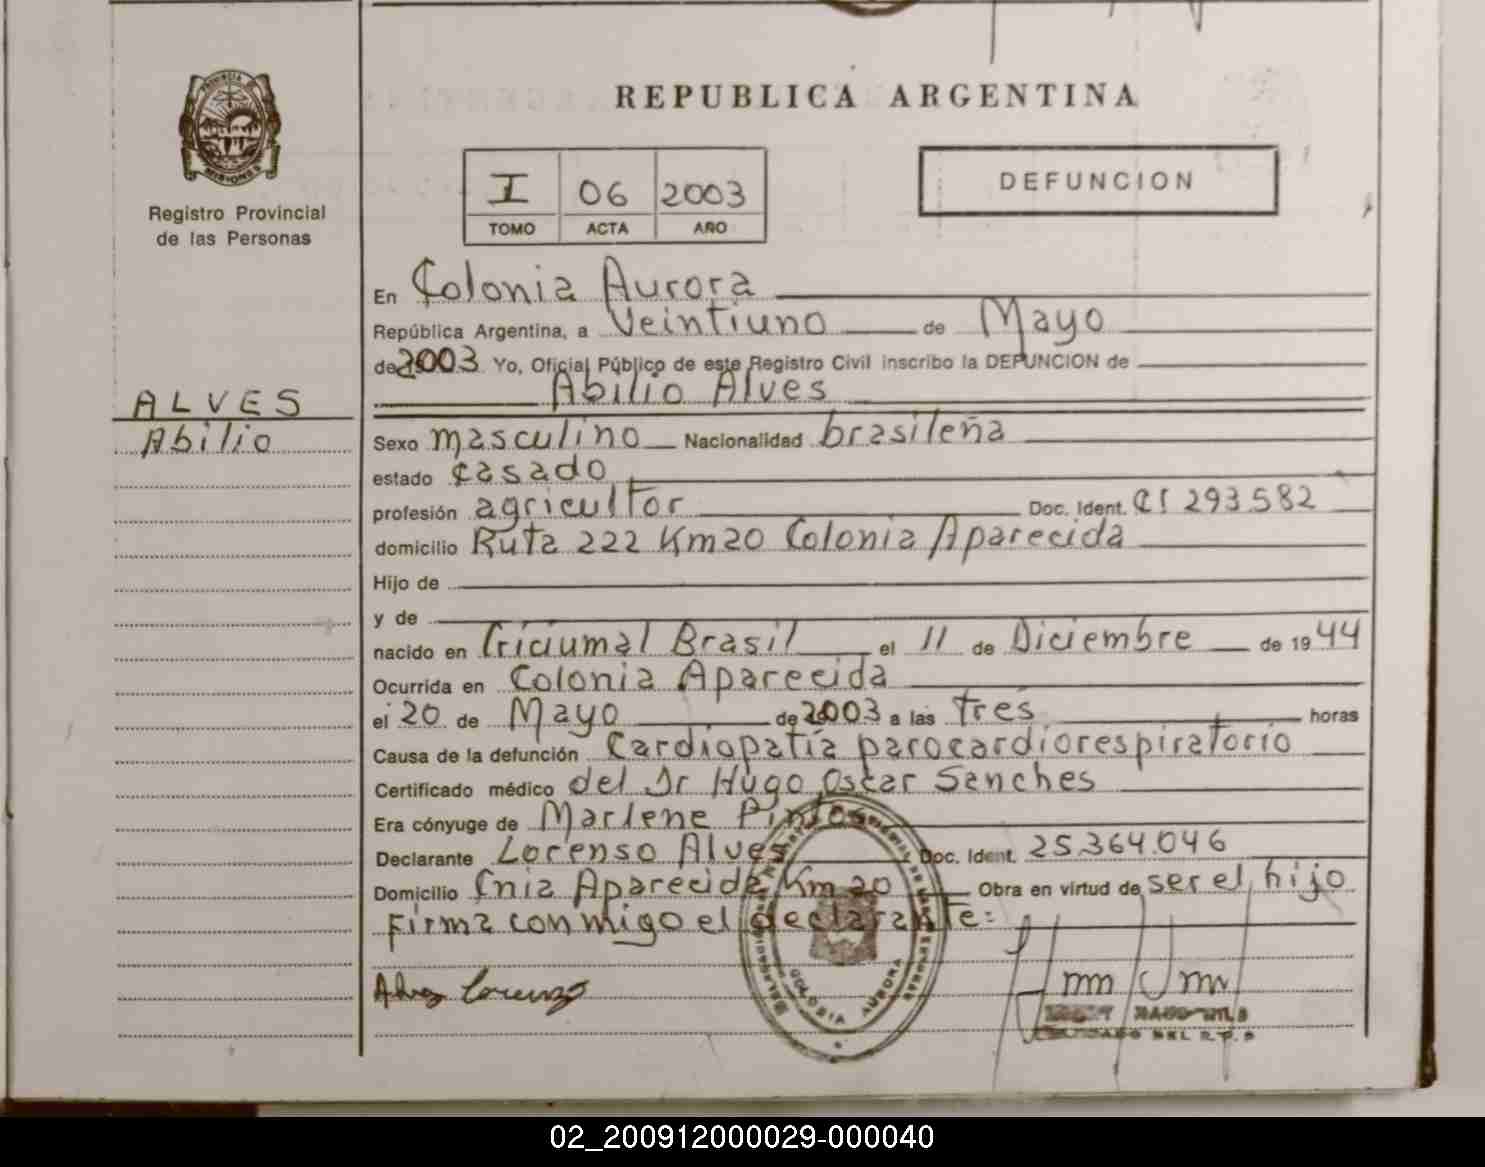 REPUBLICA ARGENTINA
PROVINCIA DE
MISIONES
Registro Provincial
de las Personas
I 06 2003
TOMO ACTA AÑO
DEFUNCION
En Colonia Aurora
República Argentina, a Veintiuno de Mayo
de 2003 Yo, Oficial Público de este Registro Civil inscribo la DEFUNCION de
Abilio Alves
ALVES
Abilio
Sexo masculino Nacionalidad brasileña
estado casado
profesión agricultor Doc. Ident. CI 293.582
domicilio Ruta 222 Km20 Colonia Aparecida
Hijo de
y de
nacido en Criciumal Brasil el 11 de Diciembre de 1944
Ocurrida en Colonia Aparecida
el 20 de Mayo de 2003 a las tres horas
Causa de la defunción Cardiopatía parocardiorespiratorio
Certificado médico del Dr Hugo Oscar Sanches
Era cónyuge de Marlene Pintos
Declarante Lorenso Alves Doc. Ident. 25.364.046
Domicilio Cnia Aparecida Km 20 Obra en virtud de ser el hijo
Firma conmigo el declarante:
Alves Lorenzo
COLONIA AURORA
DEL R.P.P
02_200912000029-000040